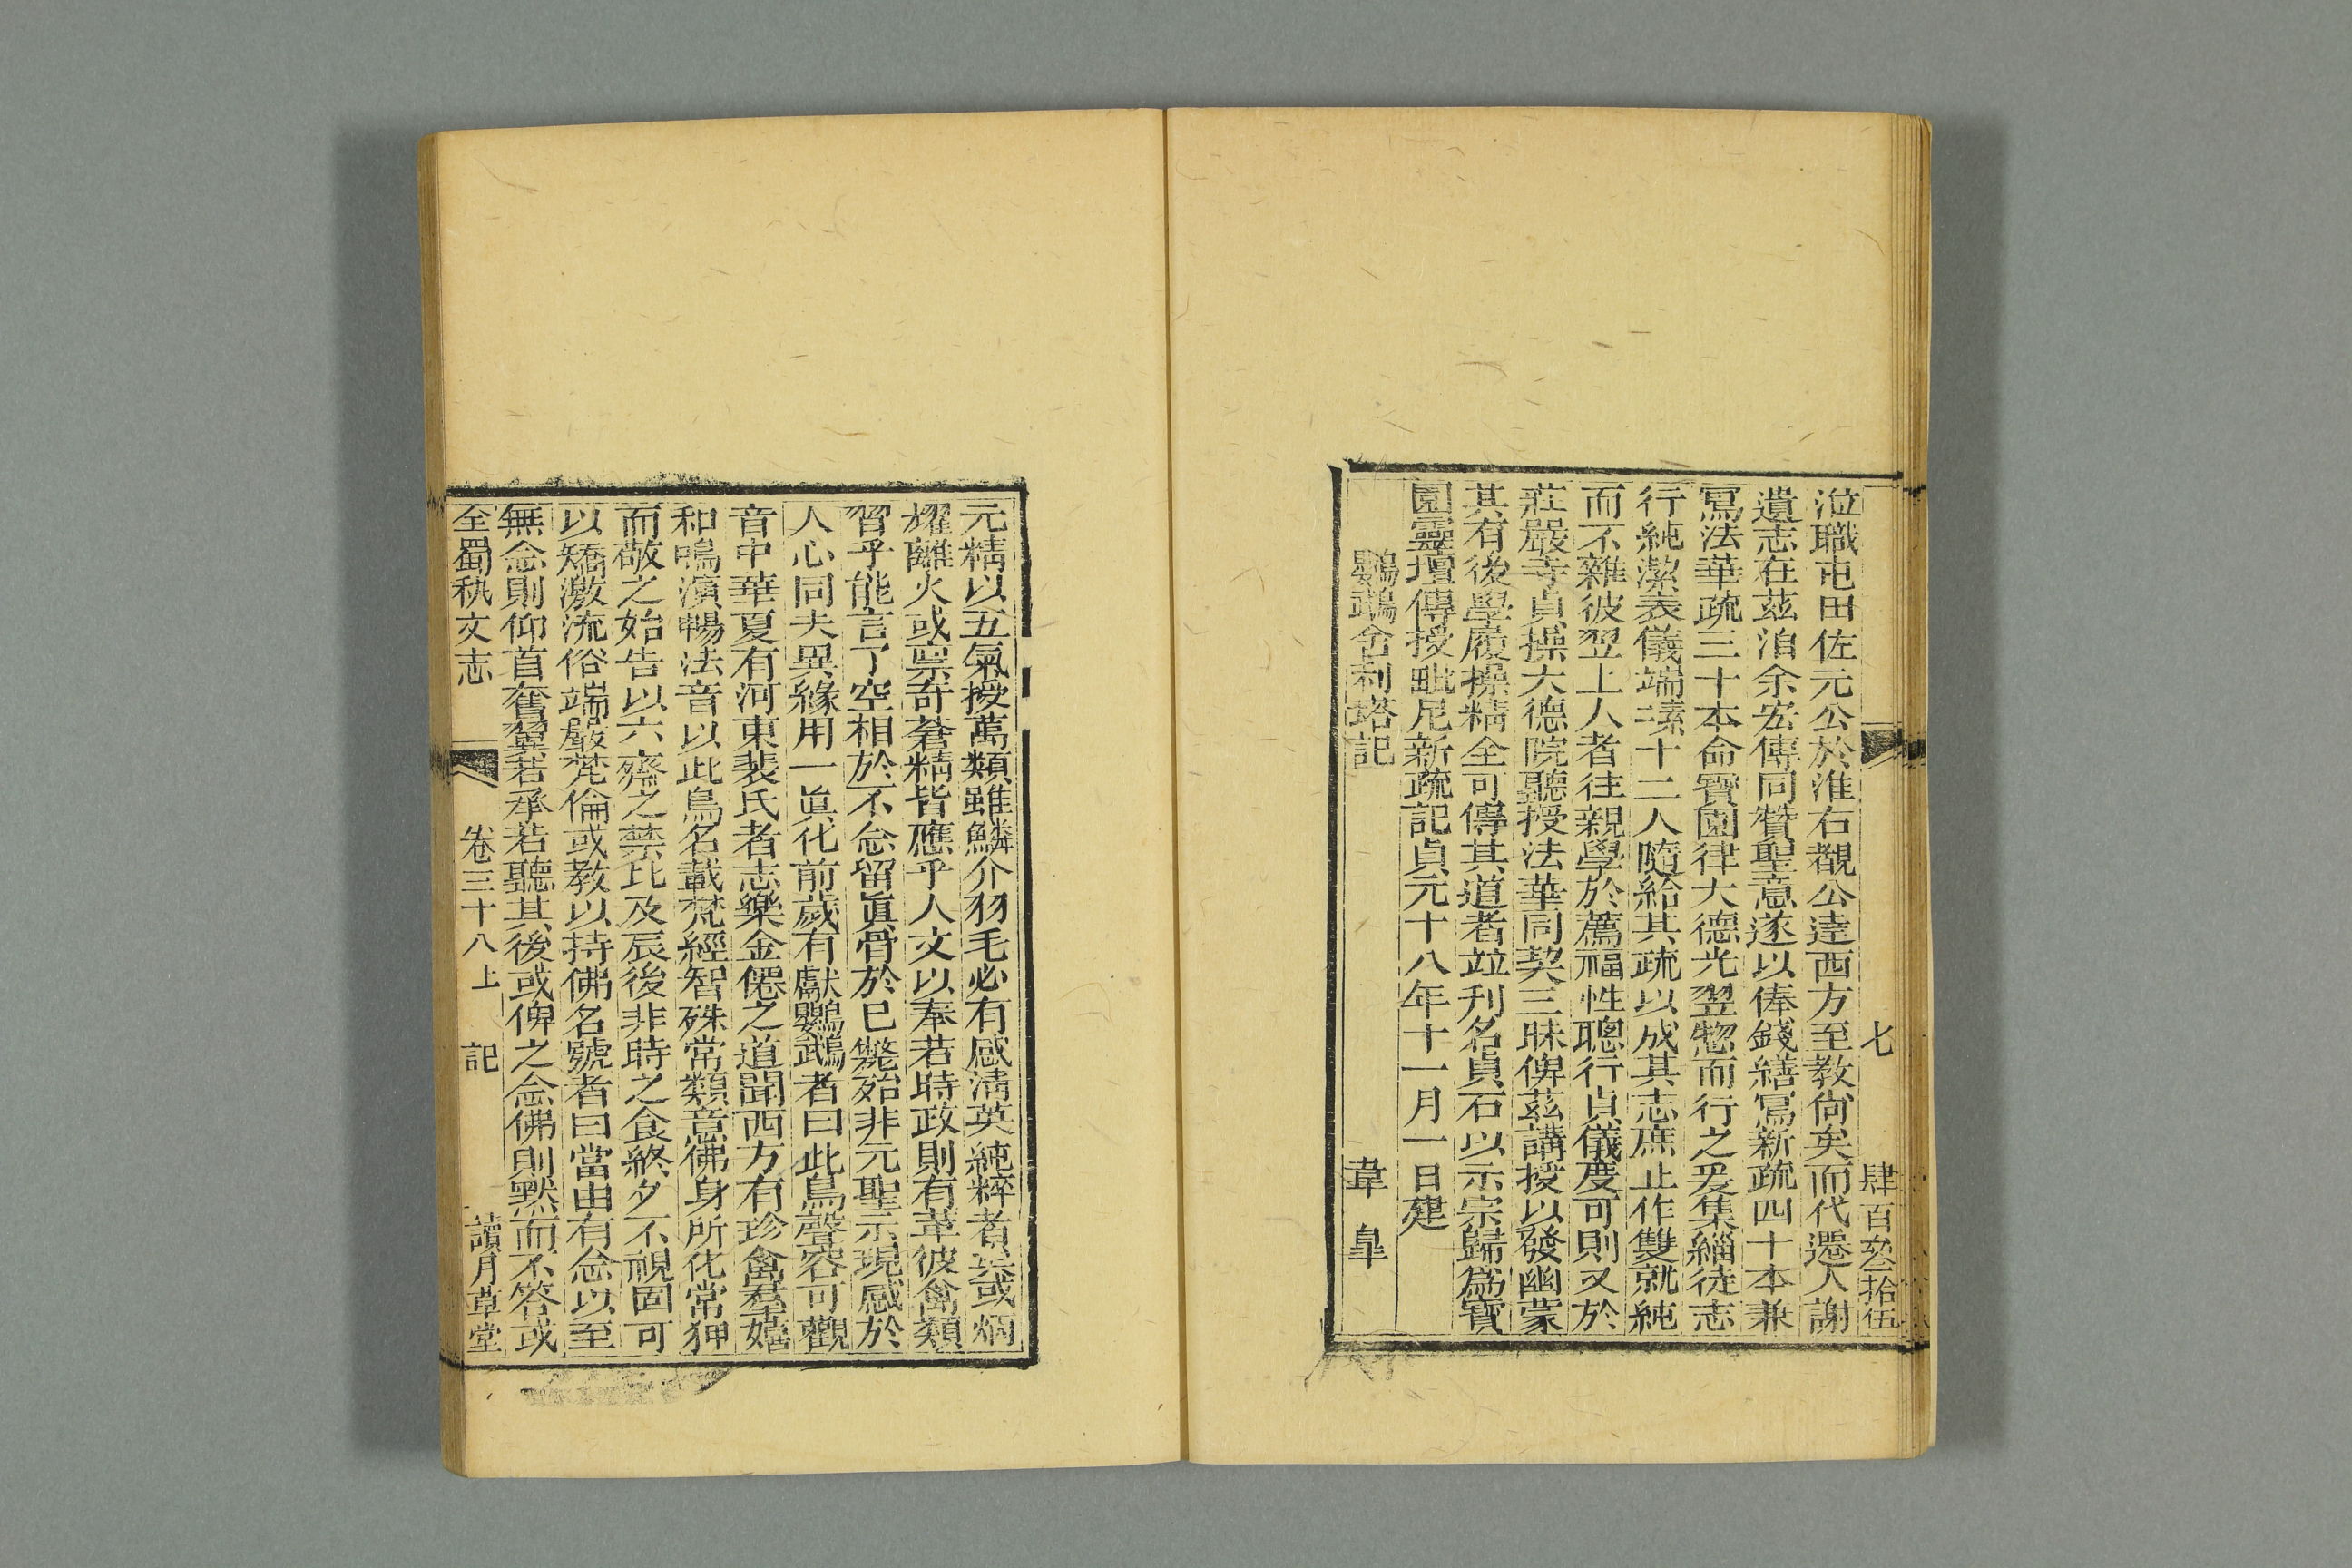 七 肆百叁拾伍
涖職屯田佐元公於淮右覩公達西方至教尙矣而代遷人謝
遺志在茲洎余宏傳同贊聖意遂以俸錢繕寫新疏四十本兼
寫法華疏三十本命寶園律大德光翌惣而行之爰集緇徒志
行純潔表儀端素十二人隨給其疏以成其志庶止作雙就純
而不雜彼翌上人者往親學於薦福性聰行貞儀度可則又於
莊嚴寺貞操大德院聽授法華同契三昧俾茲講授以發幽蒙
其有後學履操精全可傳其道者竝刋名貞石以示宗歸爲寶
園靈壇傳授毗尼新疏記貞元十八年十一月一日建
鸚鵡舍利塔記 韋皐
元精以五氣授萬類雖鱗介羽毛必有感淸英純粹者矣或炳
燿離火或禀奇蒼精皆應乎人文以奉若時政則有革彼禽類
習乎能言了空相於不念留眞骨於已斃殆非元聖示現感於
人心同夫異緣用一眞化前歲有獻鸚鵡者曰此鳥聲容可觀
音中華夏有河東裴氏者志樂金僊之道聞西方有珍禽羣嬉
和鳴演暢法音以此鳥名載梵經智殊常類意佛身所化常狎
而敬之始告以六齋之禁比及辰後非時之食終夕不視固可
以矯激流俗端嚴梵倫或教以持佛名號者曰當由有念以至
無念則仰首奮翼若承若聽其後或俾之念佛則默而不答或
全蜀秇文志 卷三十八上 記 讀月草堂